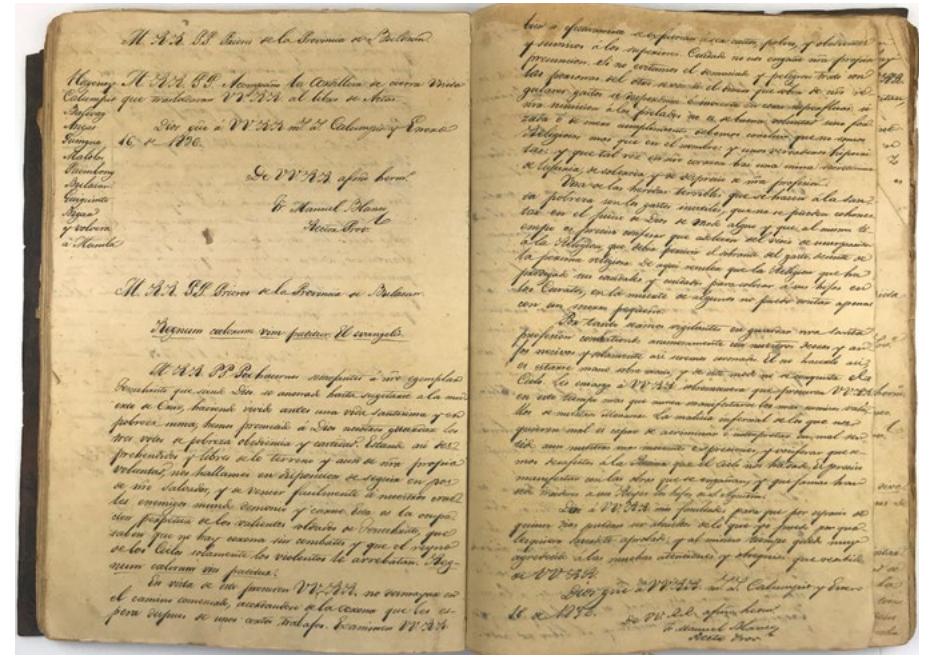 M. R. R. P.P. Priores de la Provincia de Bulacan
Hagonoy
Calumpit
Baliuag
Angat
Quingua
Malolos
Paombong
Bulacan
Guiguinto
Bigaa
y volvera
à Manila
M. R. R. P.P. Acompaña la
que trasladaran VV. RR. al libro de Actas.
Dios gûe à VV. RR. m.s a.s Calumpit y Enero
16 de 1836.
De VV. RR. afmo herm.o
Fr. Manuel Blanco
Rector Prov.l
M. R. R. P.P. Priores de la Provincia de Bulacan.
Regnum coelorum vim patitur. El evangelio.
M. R. R. P.P. Por hacernos semejantes à nro ejemplar
Jesuchristo que siendo Dios se anonadó hasta sugetarse à la mu
erte de Cruz, haviendo vivido antes una vida santisima y en
pobreza suma, hemos prometido à Dios nosotros guardar los
tres votos de pobreza obediencia y castidad. Estando asi des
prehendidos y libres de lo terreno y aun de nra propia
voluntad, nos hallamos en disposicion de seguir en pos
de nro Salvador, y de vencer facilmente à nuestros
les enemigos mundo demonio y carne. Esta es la ocupa
cion perpetua de los valientes soldados de Jesuchristo, que
saben que no hay corona sin combates y que el reyno
de los Cielos solamente los violentos le arrebatan. Reg
num coelorum vim patitur.
En vista de esto procuren VV. RR. no desmayar en
el camino comenzado, acordandose de la corona que les es
pera despues de unos cortos trabajos. Examinen VV. RR.
bien si efectivamente se esfuerzan à ser castos, pobres, y obedientes
y sumisos à los superiores. Cuidado no os engañe nra propia
presuncion. Si no cortamos el demasiado y peligroso trato con
las personas del otro sexo
gulares gastos
nra sumision à los prelados no es de buena voluntad sino for
zada ò de mero cumplimiento, debemos concluir que no somos
Religiosos mas que en el nombre, y unos verdaderos
tas: y que tal vez en nro corazon hai una mina
de lujuria, de soberbia y de desprecio de nra profesion.
Una de las heridas terribles que se hacen à la san
ta pobreza son los gastos inutiles, que no se pueden cohones
tar en el juicio de Dios de modo alguno y que al mismo ti
empo es preciso confesar que adolecen del vicio de
à la Religion, que debia percibir el sobrante del gasto decente de
la persona religiosa. De aqui resulta que la Religion que ha
prodigado sus caudales y cuidados para colocar à sus hijos en
los Curatos, en la muerte de algunos no puede contar apenas
con un socorro pequeño.
Por tanto seamos vigilantes en guardar nra santa
profesion combatiendo animosamente con nuestros deseos y
y solamente asi seremos coronados. El no hacerlo asi
es estarse mano sobre mano, y de este modo no se conquista el
Cielo. Les encargo à VV. RR.
en este tiempo mas que nunca
los de nuestra
quieren mal es capaz de acriminar è interpretar en mal sen
tido aun nuestras mas inocentes expresiones, y
mos desafectos à la Reyna que el Cielo nos ha dado. Es preciso
manifestar con las obras que se engañan, y que jamas han
sido traidores à sus Reyes los hijos de S. Agustin.
Doi à VV. RR. mis facultades para que por espacio de
quince dias puedan ser absueltos de lo que yo puedo por qual
quiera Sacerdote aprobado; y al mismo tiempo quedo muy
agradecido à las muchas atenciones y obsequios que recibido
de VV. RR.
Dios gûe à VV. RR. m.s a.s Calumpit y Enero
16 de 1836.
De VV. RR. afmo herm.o
Fr. Manuel Blanco
Rector Prov.l